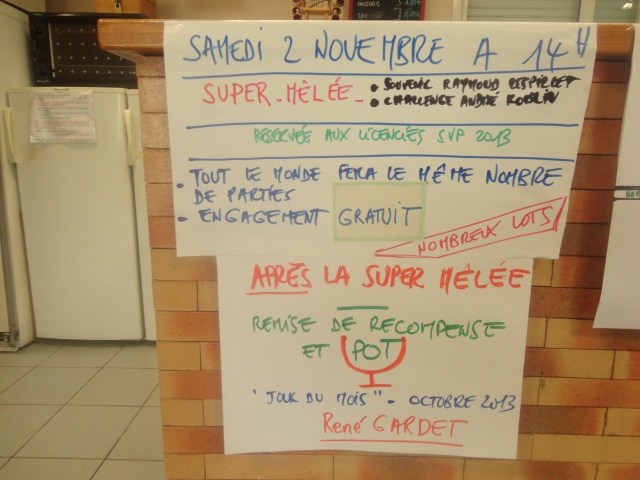 SAMEDI 2 NOVEMBRE A 14H
SUPER-MÊLÉE - • SOUVENIR RAYMOND
• CHALLENGE ANDRÉ
RÉSERVÉE AUX LICENCIÉS SVP 2013
• TOUT LE MONDE FERA LE MÊME NOMBRE
DE PARTIES
• ENGAGEMENT GRATUIT
NOMBREUX LOTS
APRÈS LA SUPER MÊLÉE
REMISE DE RECOMPENSE
ET POT
"JOUR DU MOIS" - OCTOBRE 2013
René GARDET